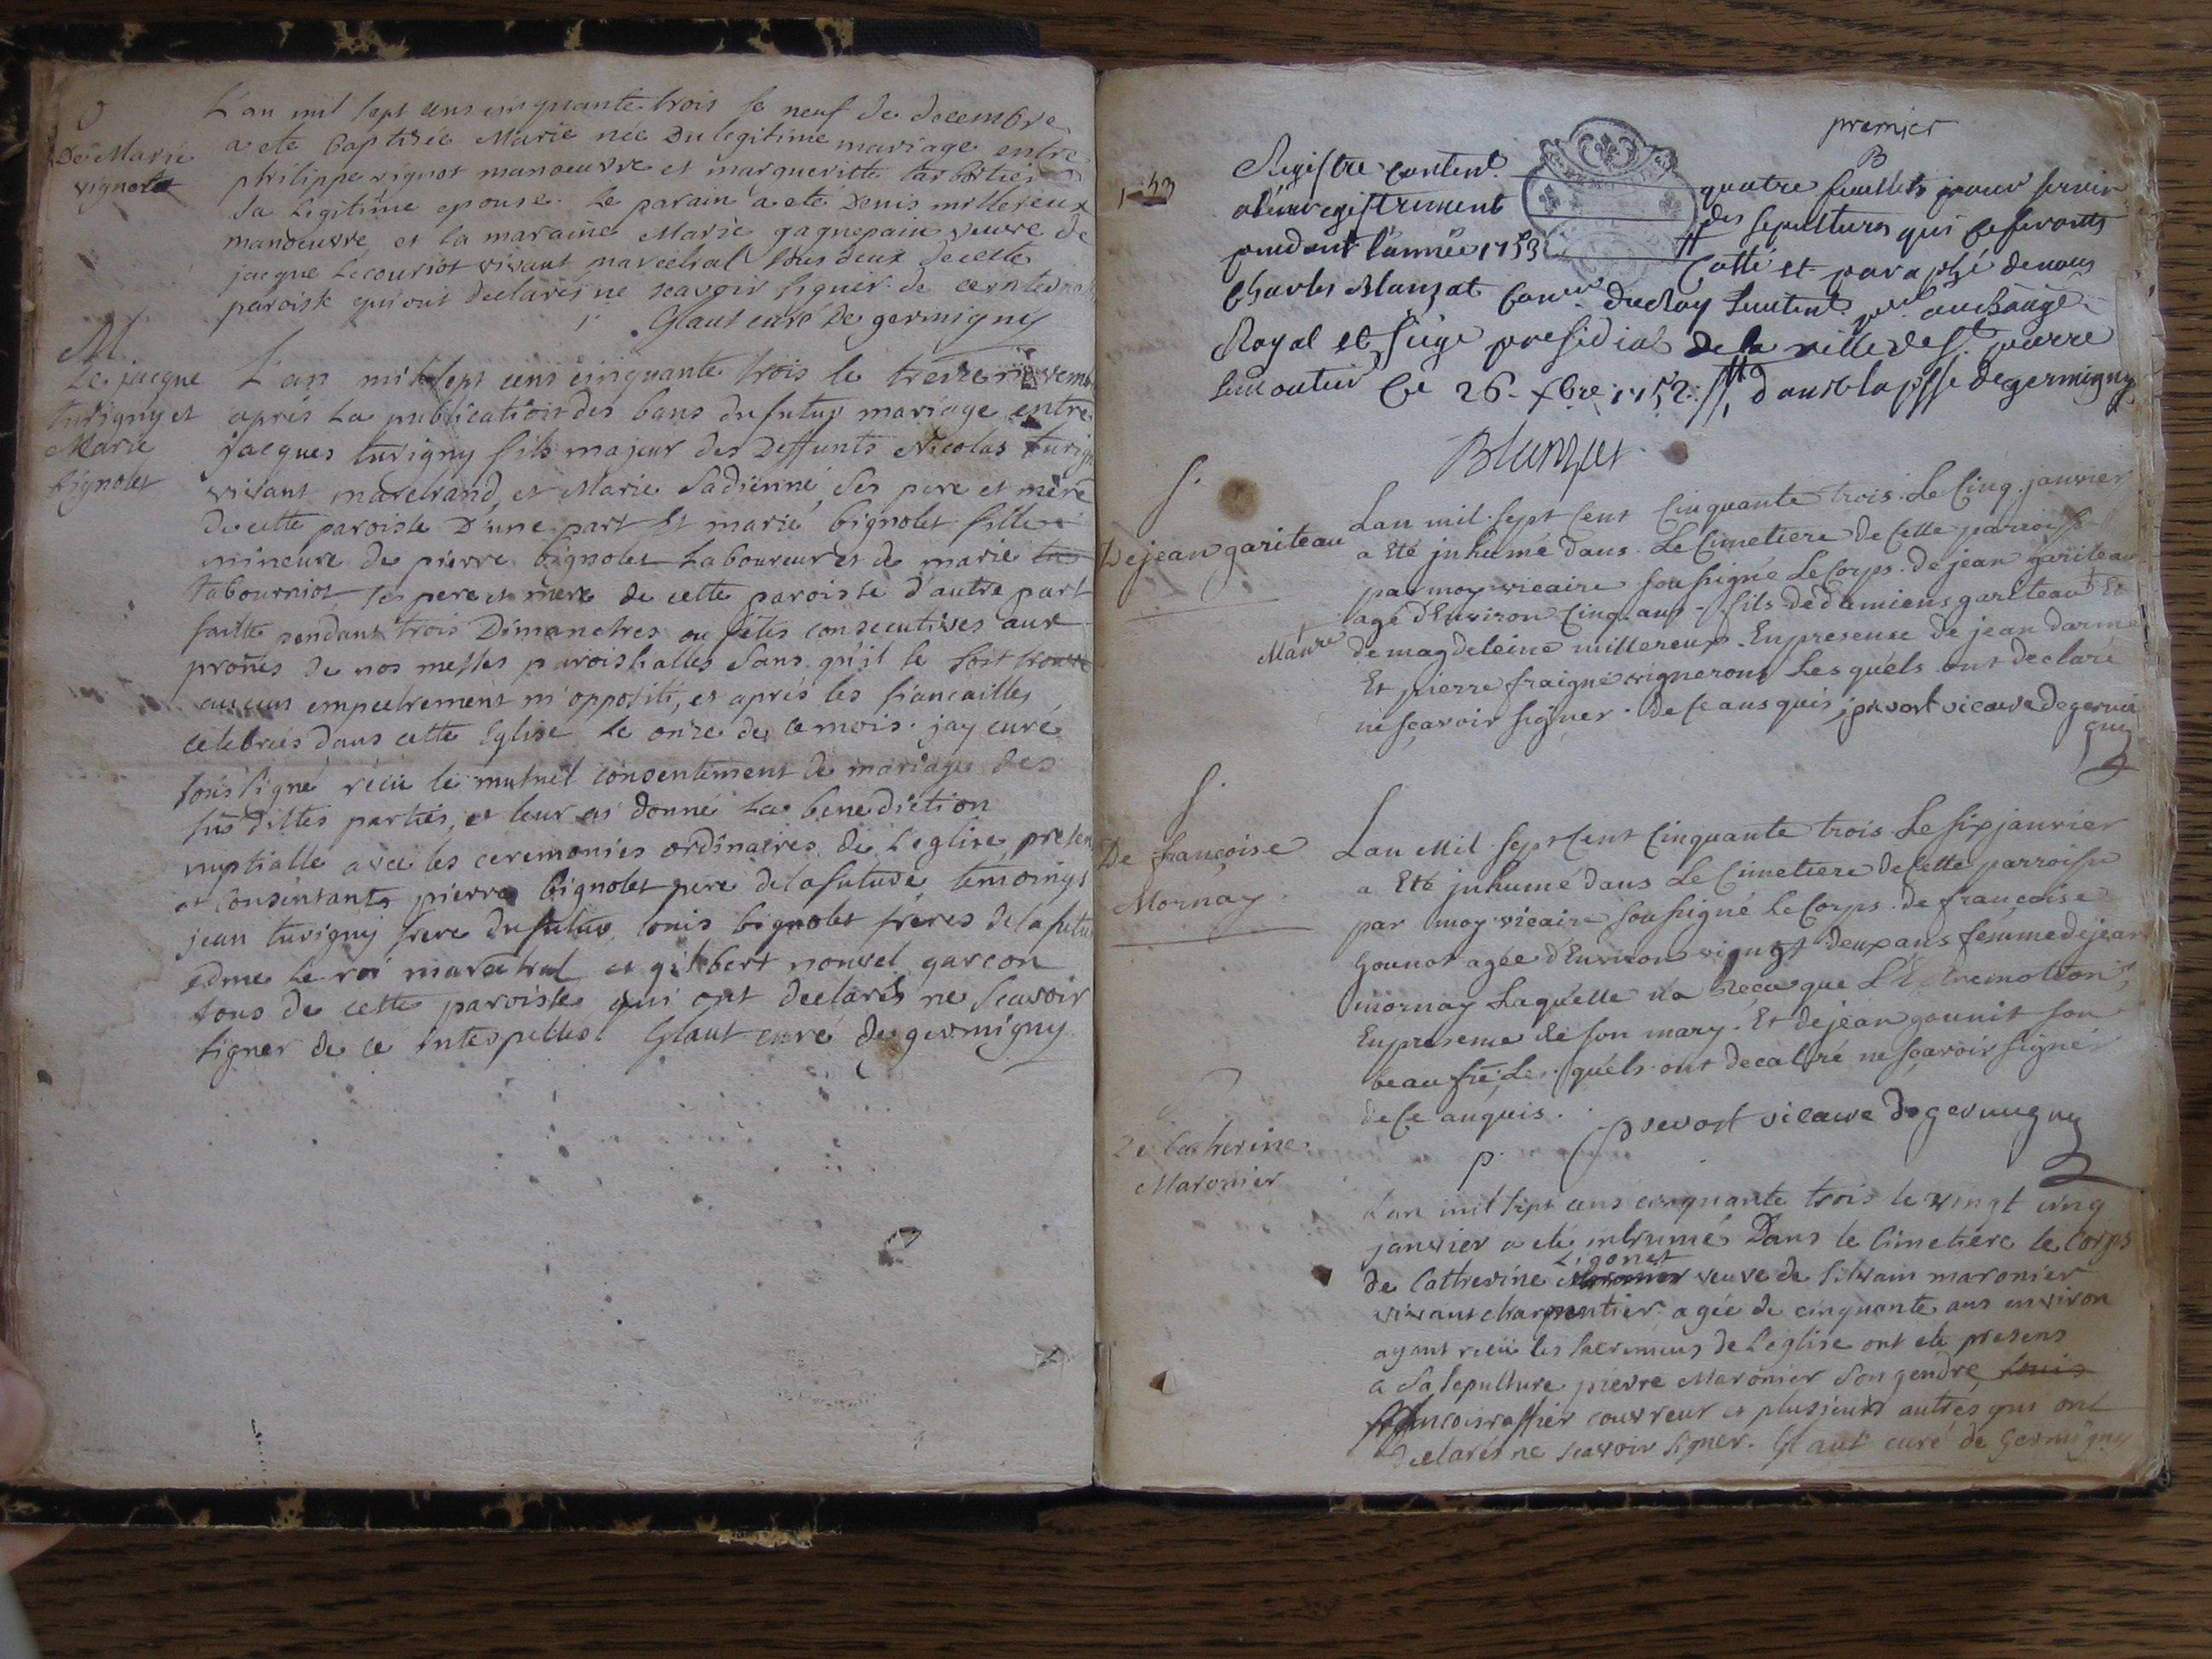 De Marie
vignot
L'an mil sept cens cinquante trois le neuf de decembre
a ete baptisée Marie née du legitime mariage entre
philippe vignot manoeuvre et margueritte
sa legitime epouse. Le parain a eté Denis millereux
manoeuvre et la maraine Marie gagnepain veuve de
jacque Lecouriot vivant marechal tous deux de cette
paroisse qui ont declarés ne scavoir signer de ce
Glaut curé De germigny
M.
De jacque
turigny et
Marie
bignolet
L'an mil sept cens cinquante trois le treize
aprés La publication des bans du futur mariage entre
jacques turigny fils majeur des Deffunts Nicolas
vivant marchand, et Marie Sadienne, ses pere et mere
de cette paroisse D'une part Et marie bignolet fille
mineure de pierre bignolet Laboureur et de marie
tabourniot ses pere et mere de cette paroisse d'autre part
faitte pendant trois Dimanches ou fêtes consecutives aux
prônes de nos messes paroissialles sans qu'il se soit trouvé
aucun empechement ni oppositi, et aprés les fiancailles
celebrées dans cette Eglise le onze de ce mois. jay curé
soussigné reçu le mutuel consentement de mariage des
sus dittes parties, et leur ai donné La benediction
nuptialle avec les ceremonies ordinaires de L'eglise
et consentants pierre bignolet pere de la future temoings
jean turigny frere du futur, louis bignolet frères de la
edme Le roi marechal et gilbert nouvel garcon
tous de cette paroisse qui ont declarés ne scavoir
signer de ce interpellés Glaut curé de germigny
premier
B
Registre conten.t quatre feuillets pour servir
a l'enregistrement des sepultures qui se feronts
pendant l'année 1753 Cotté et paraphé de nous
Charles Blanzat Con.er du Roy Lieuten.t au Bailge
Royal et siege presidial de la ville de S.t pierre
Le moutier Ce 26. xbre 1752. dans la psse de germigny
Blanzat
S.
De jean gariteau
L'an mil sept cent Cinquante trois Le Cinq janvier
a Eté jnhumé dans Le Cimetiere de Cette parroisse
par moy vicaire soussigné Le Corps de jean gariteau
agé d'Environ Cinq ans fils de damiens gariteau Et
de magdeleine millereux En presense de jean
Et pierre fraigne vignerons Lesquels ont declaré
ne sçavoir signer. de Ce anquis prevost vicaire de germi
gny
S.
De françoise
Mornay
Lan Mil sept Cent Cinquante trois Le six janvier
a Eté jnhumé dans Le Cimetiere de Cette parroisse
par moy vicaire soussigné Le Corps de françoise
Gounot agée d'Environ vignt deux ans femme de jean
mornay Laquelle na reçu que L'Extremotion,
En presense de son mary. Et de jean gounit son
beau fre. Lesquéls ont decalré ne sçavoir signér
de Ce anquis.
prevost vicaire de germigny
De Catherine
Maronier
L'an mil sept cens cinquante trois le vingt cinq
janvier a eté inhumé Dans le Cimetiére le Corps
Ligonet
de Catherine veuve de silvain maronier
vivant charpentier agée de cinquante ans environ
ayant recu les sacremens de L'eglise ont ete presens
a Sa sepulture pierre Maronier Son gendre, louis
couvreur et plusieurs autres qui ont
declarés ne scavoir signer. Glaut curé de Germigny